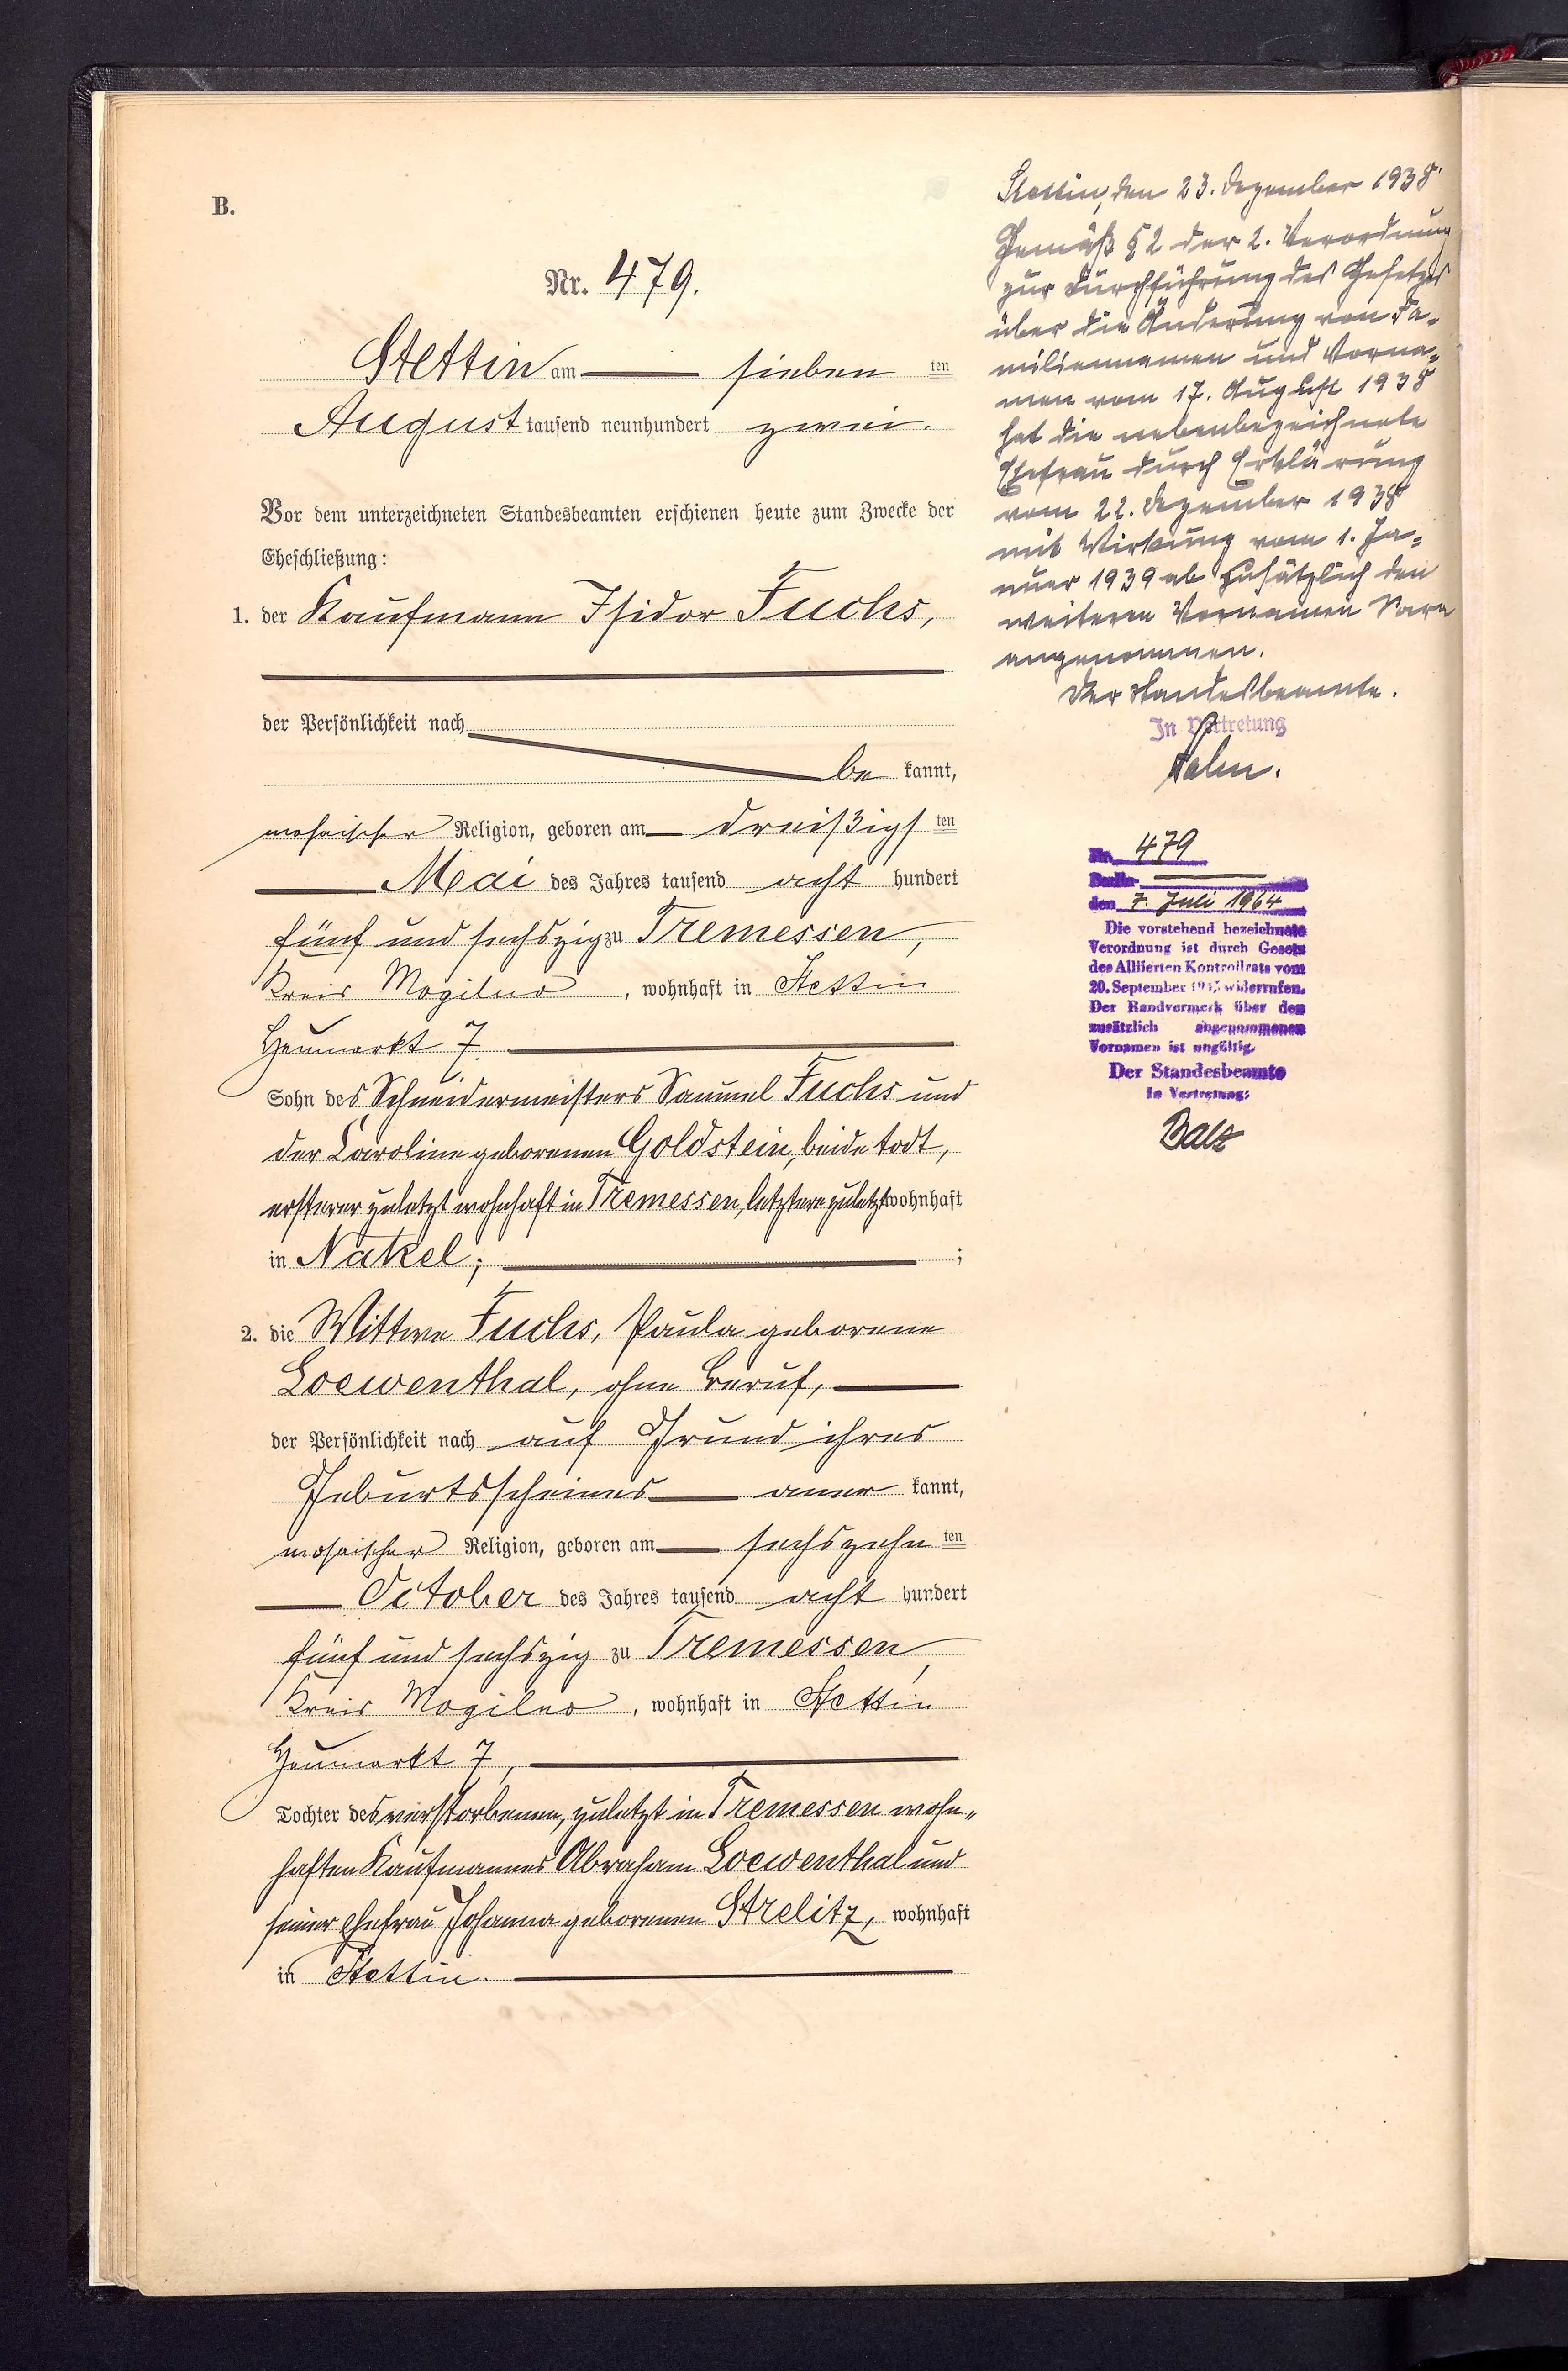 B.
Nr. 479.
Stettin am sieben ten
August tausend neunhundert zwei.
Vor dem unterzeichneten Standesbeamten erschienen heute zum Zwecke der
Eheschließung:
1. der Kaufmann Isidor Fuchs,
der Persönlichkeit nach
be kannt,
mosaischer Religion, geboren am dreißigs ten
Mai des Jahres tausend acht hundert
fünf und sechszig zu Tremessen,
Kreis Mogilno, wohnhaft in Stettin
Heumarkt 7.
Sohn des Schneidermeisters Samuel Fuchs und
der Caroline geborenen Goldstein, beide todt,
ersterer zuletzt wohnhaft in Tremessen, letztere zuletzt wohnhaft
in Nakel; ;
2. die Wittwe Fuchs, Paula geborene
Loewenthal, ohne Beruf,
der Persönlichkeit nach auf Grund ihres
Geburtsscheines aner kannt,
mosaischer Religion, geboren am sechszehn ten
October des Jahres tausend acht hundert
fünf und sechszig zu Tremessen,
Kreis Mogilno, wohnhaft in Stettin
Heumarkt 7,
Tochter des verstorbenen, zuletzt in Tremessen wohn-
haften Kaufmannes Abraham Loewenthal und
seiner Ehefrau Johanna geborenen Strelitz, wohnhaft
in Stettin.
Stettin, den 23. Dezember 1938
Gemäß § 2 der 2. Verordnung
zur Durchführung des Gesetzes
über die Änderung von Fa-
miliennamen und Vorna-
men vom 17. August 1938
hat die nebenbezeichnete
Ehefrau durch Erklärung
vom 22. Dezember 1938
mit Wirkung vom 1. Ja-
nuar 1939 ab zusätzlich den
weiteren Vornamen Sara
angenommen.
Der Standesbeamte.
In Vertretung
Nr. 479
Berlin
den 7. Juli 1964
Die vorstehend bezeichnete
Verordnung ist durch Gesetz
des Alliierten Kontrollrats vom
20. September 1945 widerrufen.
Der Randvermerk über den
zusätzlich angenommenen
Vornamen ist ungültig.
Der Standesbeamte
In Vertretung:
Balz